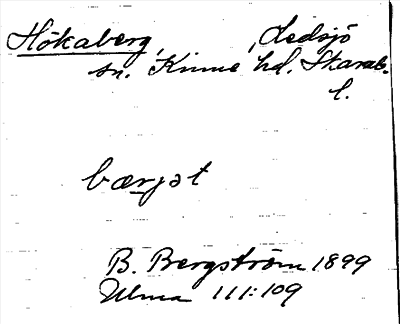 Hökaberg, , Ledsjö
sn. Kinne hd. Skarab.
l.
bærjət
B. Bergström 1899
Ulma 111:109